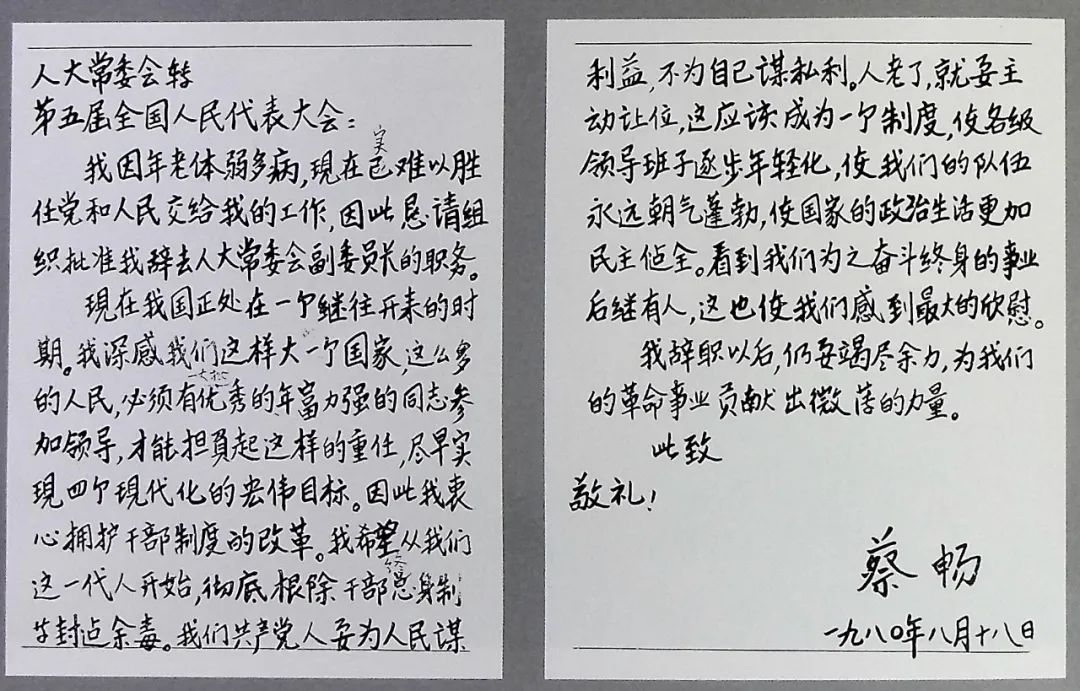 人大常委会转
第五届全国人民代表大会：
我因年老体弱多病，现在已实难以胜
任党和人民交给我的工作，因此恳请组
织批准我辞去人大常委会副委员长的职务。
现在我国正处在一个继往开来的时
期。我深感我们这样大一个国家，这么多
的人民，必须有大批优秀的年富力强的同志参
加领导，才能担负起这样的重任，尽早实
现四个现代化的宏伟目标。因此我衷
心拥护干部制度的改革。我希望从我们
这一代人开始，彻底根除干部终身制
等封建余毒。我们共产党人要为人民谋
利益，不为自己谋私利。人老了，就要主
动让位，这应该成为一个制度，使各级
领导班子逐步年轻化，使我们的队伍
永远朝气蓬勃，使国家的政治生活更加
民主健全。看到我们为之奋斗终身的事业
后继有人，这也使我们感到最大的欣慰。
我辞职以后，仍要竭尽余力，为我们
的革命事业贡献出微薄的力量。
此致
敬礼！
蔡畅
一九八〇年八月十八日